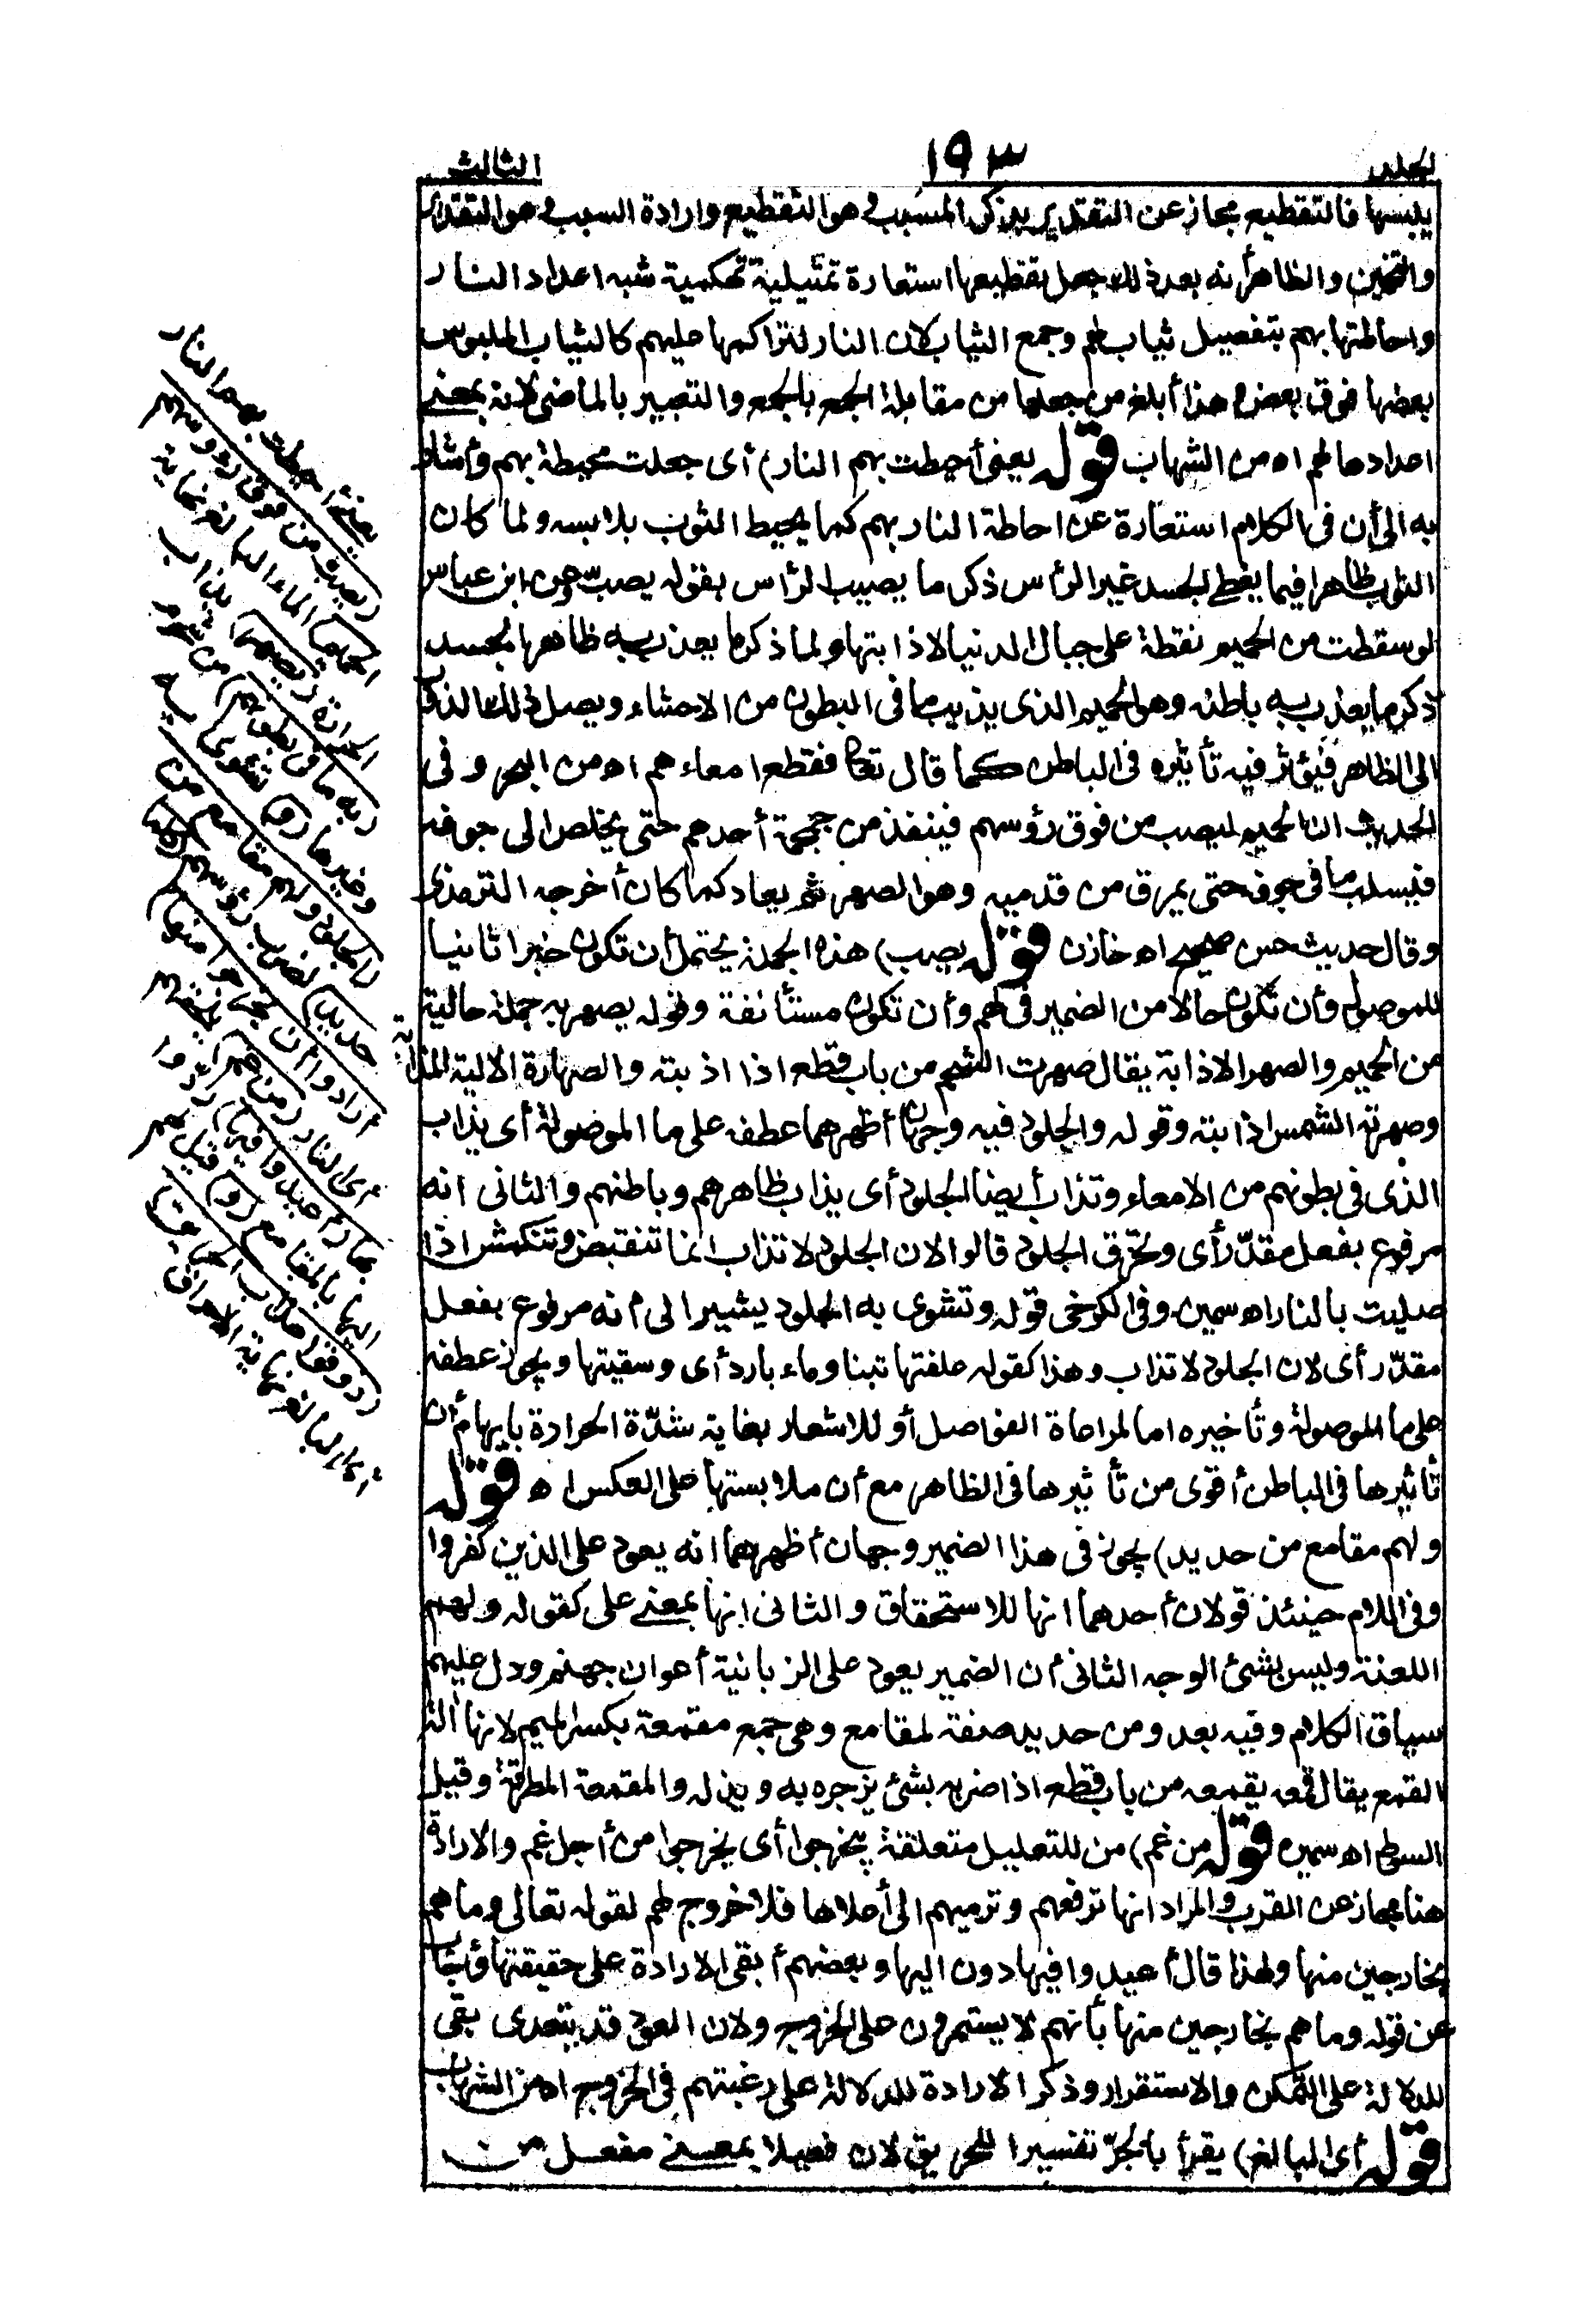 الجلد
١٩٣
الثالث
يلبسها فالتقطيع مجاز عن التقدير بذكر المسبب وهو التقطيع وارادة السبب وهو التقدير
والتخمين والظاهر أنه بعد ذلك جعل تقطيعها استعارة تمثيلية تهكمية شبه اعداد النار
واحاطتها بهم بتفصيل ثياب لهم وجمع الثياب لان النار لتراكمها عليهم كالثياب الملبوس
بعضها فوق بعض وهذا أبلغ من جعلها من مقابلة الجمع بالجمع والتعبير بالماضي لانه بمعنى
اعدادها لهم اه من الشهاب قوله يعني أحيطت بهم النار) أى جعلت محيطة بهم وأشار
به الى أن فى الكلام استعارة عن احاطة النار بهم كما يحيط الثوب بلابسه ولما كان
الثوب ظاهرا فيما يغطى الجسد غير الرأس ذكر ما يصيب الرأس بقوله يصب وعن ابن عباس
لو سقطت من الحميم نقطة على جبال الدنيا لاذابتها ولما ذكر ما يعذب به ظاهر الجسد
ذكر ما يعذب به باطنه وهو الحميم الذى يذيب ما فى البطون من الاحشاء ويصل ذلك الذوب
الى الظاهر فيؤثر فيه تأثيره فى الباطن كما قال تعالى فقطع امعاءهم اه من البحر وفى
الحديث ان الحميم ليصب من فوق رؤسهم فينفذ من جمجمة أحدهم حتى يخلص الى جوفه
فيسلب ما فى جوفه حتى يمرق من قدميه وهو الصهر ثم يعاد كما كان أخرجه الترمذى
وقال حديث حسن صحيح اه خازن قوله يصب) هذه الجملة يحتمل أن تكون خبرا ثانيا
للموصول وأن تكون حالا من الضمير فى لهم وأن تكون مستأنفة وقوله يصهر به جملة حالية
من الحميم والصهر الاذابة يقال صهرت الشحم من باب قطع اذا اذبته والصهارة الالية المذابة
وصهرته الشمس اذابته وقوله والجلود فيه وجهان أظهرهما عطفه على ما الموصولة أى يذاب
الذى فى بطونهم من الامعاء وتذاب أيضا الجلود أى يذاب ظاهرهم وباطنهم والثانى انه
مرفوع بفعل مقدّر أى وتحرق الجلود قالوا لان الجلود لا تذاب انما تنقبض وتنكمش اذا
صليت بالنار اه سمين وفى الكرخى قوله وتشوى به الجلود يشير الى أنه مرفوع بفعل
مقدّر أى لان الجلود لا تذاب وهذا كقوله علفتها تبنا وماء باردا أى وسقيتها ويجوز عطفه
على ما الموصولة وتأخيره اما لمراعاة الفواصل أو للاشعار بغاية شدّة الحرارة بايهام أن
تأثيرها فى الباطن أقوى من تأثيرها فى الظاهر مع أن ملابستها على العكس اه قوله
ولهم مقامع من حديد) يجوز فى هذا الضمير وجهان أظهرهما انه يعود على الذين كفروا
وفى اللام حينئذ قولان أحدهما انها للاستحقاق والثانى انها بمعنى على كقوله ولهم
اللعنة وليس بشئ الوجه الثانى أن الضمير يعود على الزبانية أعوان جهنم ودل عليهم
سياق الكلام وفيه بعد ومن حديد صفة لمقامع وهى جمع مقمعة بكسر الميم لانها آلة
القمع يقال قمعه يقمعه من باب قطع اذا ضربه بشئ يزجره به ويذله والمقمعة المطرقة وقيل
السوط اه سمين قوله من غم) من للتعليل متعلقة بيخرجوا أى يخرجوا من أجل غم والارادة
هنا مجاز عن القرب والمراد انها ترفعهم وترميهم الى أعلاها فلا خروج لهم لقوله تعالى وما هم
بخارجين منها ولهذا قال أعيدوا فيها دون اليها وبعضهم أبقى الارادة على حقيقتها وأجاب
عن قوله وما هم بخارجين منها بأنهم لا يستمرون على الخروج ولان العود قد يتعدى بفى
للدلالة على التمكن والاستقرار وذكر الارادة للدلالة على رغبتهم فى الخروج اه من الشهاب
قوله أى البالغ) يقرأ بالجرّ تفسيرا للحريق لان فعيلا بمعنى مفعل من
يعنى أحيطت بهم النار
(يصب من فوق رؤوسهم
الحميم) الماء البالغ نهاية
الحرارة (يصهر) يذاب
(به ما فى بطونهم) من شحوم
وغيرها (و) تشوى به
(الجلود ولهم مقامع من
حديد) لضرب رؤسهم (كلما
أرادوا أن يخرجوا منها)
أى النار (من غم) يلحقهم
بها (أعيدوا فيها) ردوا
اليها بالمقامع (و) قيل لهم
(ذوقوا عذاب الحريق)
أى البالغ نهاية الاحراق